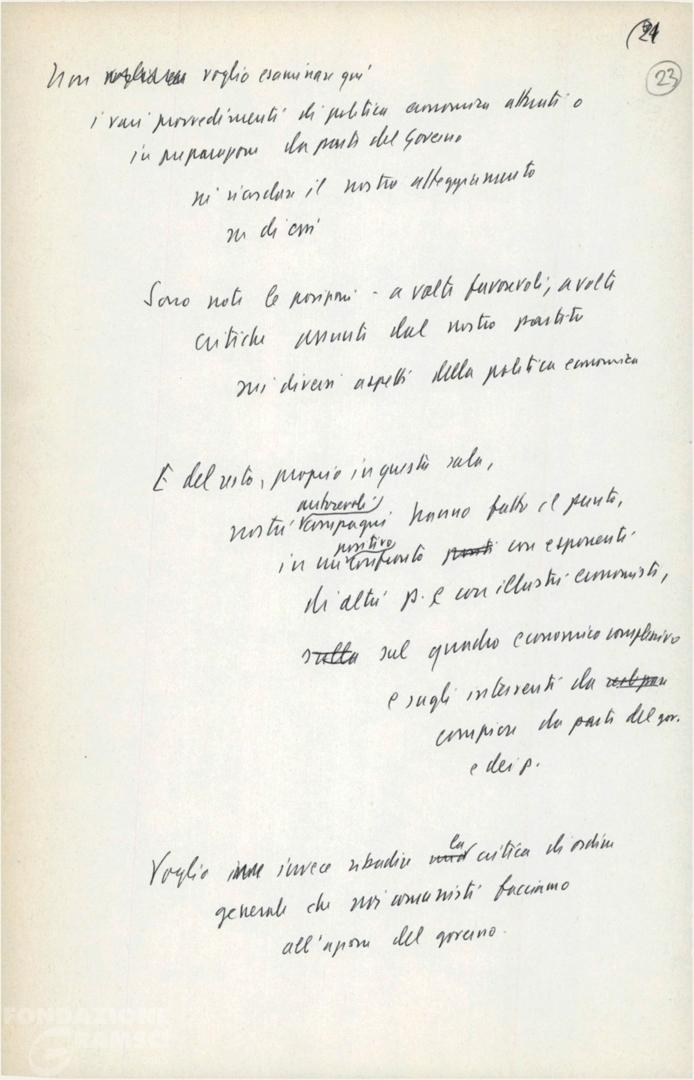 (21
23
Non voglio esaminare qui
i vari provvedimenti di politica economica attuati o
in preparazione da parte del Governo
né ricordare il nostro atteggiamento
su di essi
Sono note le posizioni - a volte favorevoli, a volte
critiche assunte dal nostro partito
sui diversi aspetti della politica economica
E del resto, proprio in questa sala,
autorevoli
nostri compagni hanno fatto il punto,
positivo
in un confronto con esponenti
di altri p. e con illustri economisti,
sulla sul quadro economico complessivo
e sugli interventi da
compiere da parte del gov.
e dei p.
la
Voglio invece ribadire critica di ordine
generale che noi comunisti facciamo
all'azione del governo.
FONDAZIONE
GRAMSCI